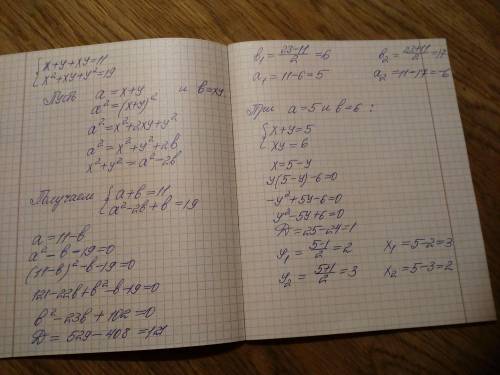 { x+y+xy=11
x²+xy+y²=19
Пусть a=x+y и b=xy.
a²=(x+y)²
a²=x²+2xy+y²
a²=x²+y²+2b
x²+y²=a²-2b
Получаем { a+b=11
a²-2b+b=19
a=11-b
a²-b-19=0
(11-b)²-b-19=0
121-22b+b²-b-19=0
b²-23b+102=0
D=529-408=121
b₁=(23-11)/2=6 b₂=(23+11)/2=17
a₁=11-6=5 a₂=11-17=-6
При a=5 и b=6:
{ x+y=5
xy=6
x=5-y
y(5-y)-6=0
-y²+5y-6=0
y²-5y+6=0
D=25-24=1
y₁=(5-1)/2=2 x₁=5-2=3
y₂=(5+1)/2=3 x₂=5-3=2